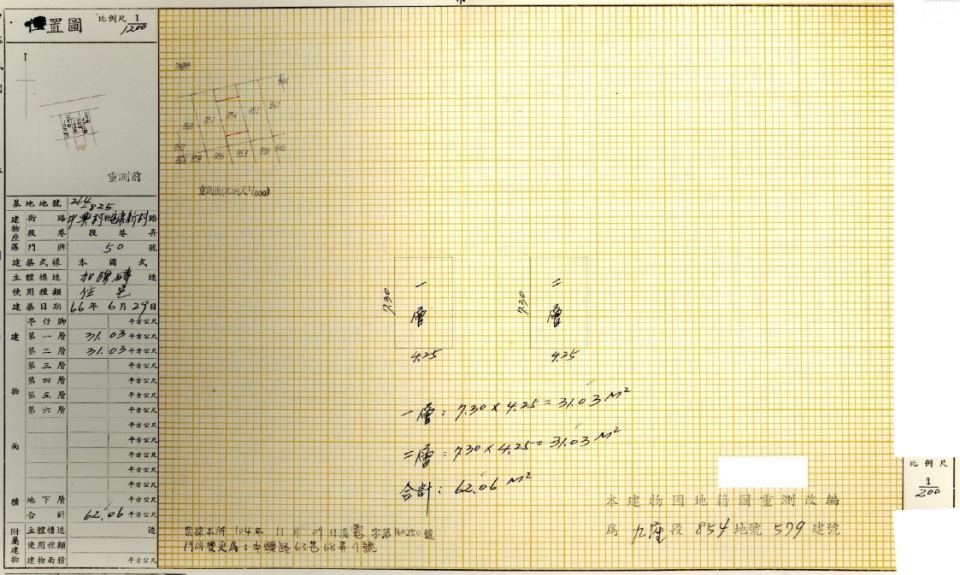 位置圖
比例尺 1/1200
重測前
重測後(比例尺1/500)
基地地號 264-825
建物座落
街路 中興村
段巷弄
門牌 50 號
建築式樣 本國式
主體構造 加強磚造
使用種類 住宅
建築日期 66年6月29日
建物面積
亭仔腳 平方公尺
第一層 31.03 平方公尺
第二層 31.03 平方公尺
第三層 平方公尺
第四層 平方公尺
第五層 平方公尺
第六層 平方公尺
平方公尺
平方公尺
平方公尺
平方公尺
平方公尺
地下層 平方公尺
合計 62.06 平方公尺
附屬建物
主體構造 造
使用種類
建物面積 平方公尺
854
一層
7.30
4.25
二層
7.30
4.25
一層: 7.30 x 4.25 = 31.03 M²
二層: 7.30 x 4.25 = 31.03 M²
合計: 62.06 M²
本建物因地籍圖重測改編
為九座段 854 地號 579 建號
104年 11月 09日
門牌變更為:中興路63巷68弄1號
比例尺
1/200